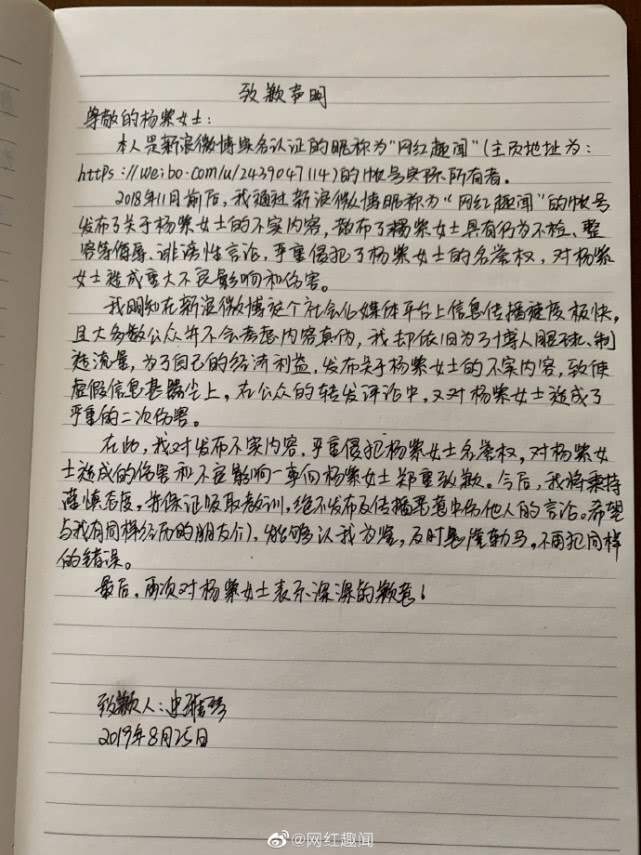 致歉声明
尊敬的杨紫女士：
本人是新浪微博实名认证的昵称为“网红趣闻”(主页地址为：
https://weibo.com/u/2439047114)的帐号实际所有者。
2018年11月前后，我通过新浪微博昵称为“网红趣闻”的帐号
发布了关于杨紫女士的不实内容，散布了杨紫女士具有行为不检、整
容等侮辱、诽谤性言论，严重侵犯了杨紫女士的名誉权，对杨紫
女士造成重大不良影响和伤害。
我明知在新浪微博这个社会化媒体平台上信息传播速度极快，
且大多数公众并不会考虑内容真伪，我却依旧为了博人眼球、制
造流量，为了自己的经济利益，发布关于杨紫女士的不实内容，致使
虚假信息甚嚣尘上，在公众的转发评论中，又对杨紫女士造成了
严重的二次伤害。
在此，我对发布不实内容，严重侵犯杨紫女士名誉权，对杨紫女
士造成的伤害和不良影响一事向杨紫女士郑重致歉。今后，我将秉持
谨慎态度，并保证吸取教训，绝不发布及传播恶意中伤他人的言论。希望
与我有同样经历的朋友们，能够以我为鉴，及时悬崖勒马，不再犯同样
的错误。
最后，再次对杨紫女士表示深深的歉意！
致歉人：史
2019年8月25日
@网红趣闻